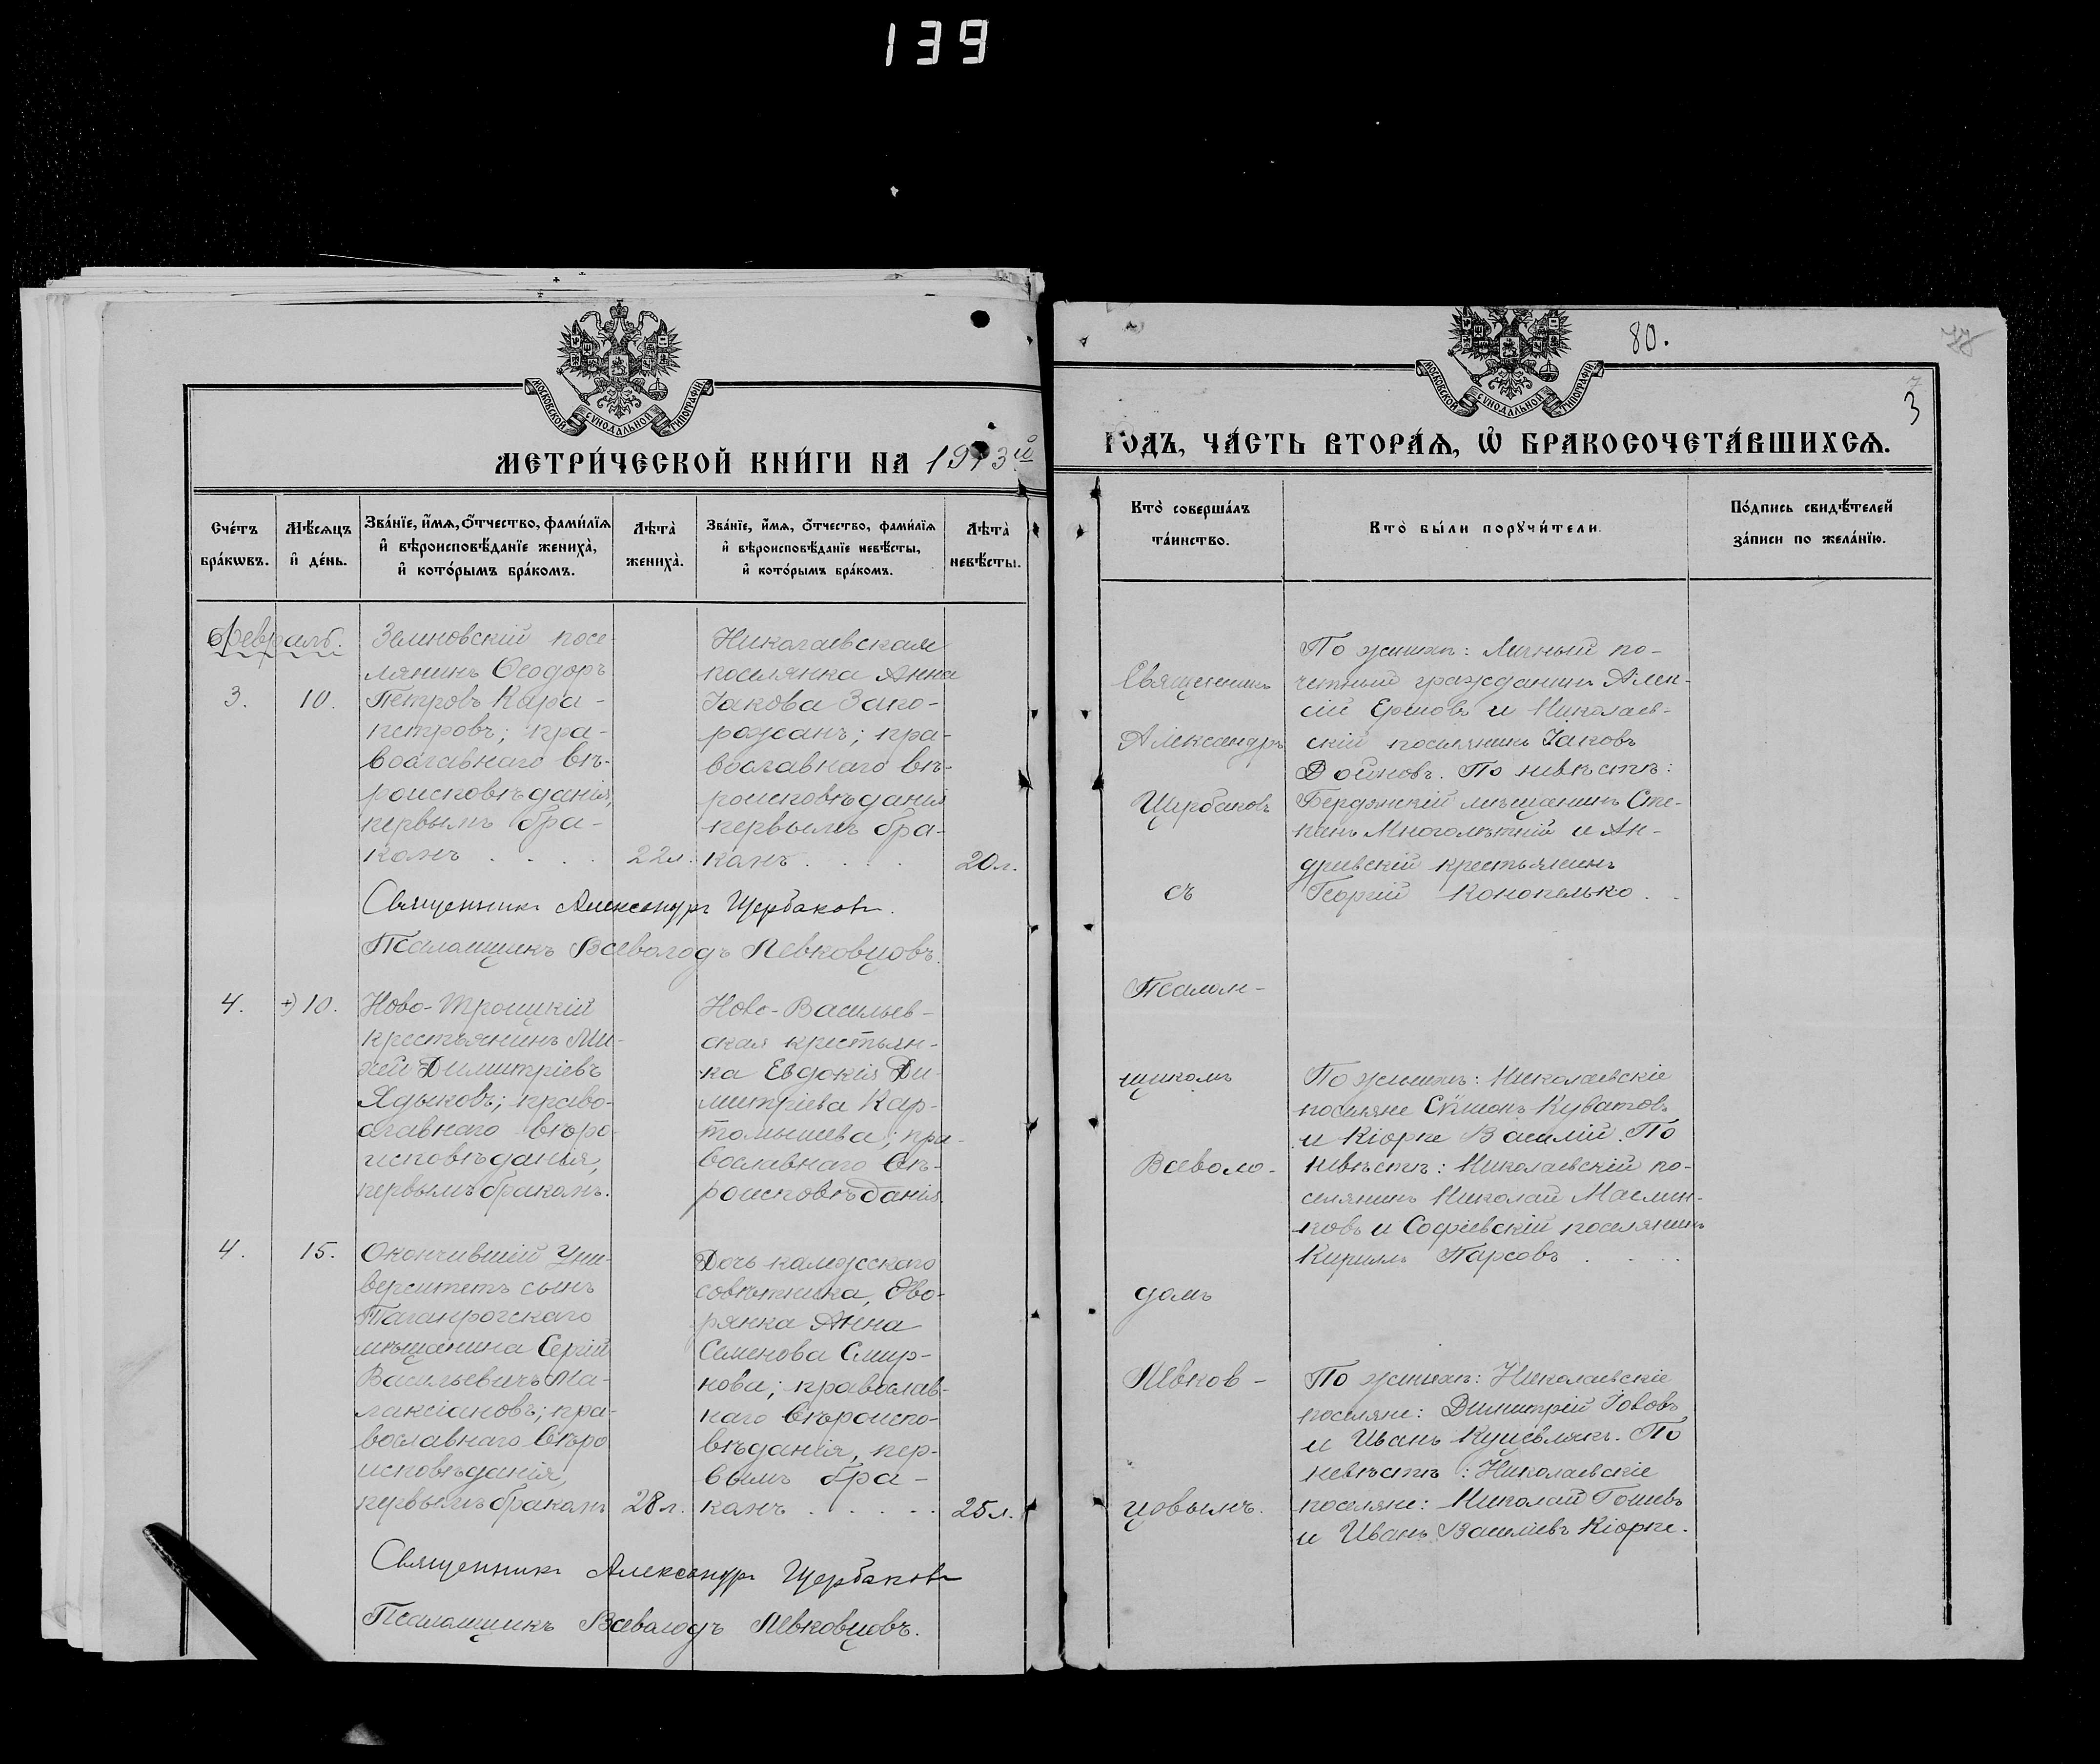 139
МОСКОВСКОЙ СУНОДАЛЬНОЙ ТИПОГРАФІИ
МЕТРИ́ЧЕСКОЙ КНИ́ГИ НА 1913й
Сче́тъ бра́кѡвъ.
Мѣ́сяцъ и де́нь.
Зва́нїе, и́мѧ, ѻ́тчество, фами́лїѧ и вѣроисповѣ́данїе жениха̀, и кото́рымъ бра́комъ.
Лѣта̀ жениха̀.
Зва́нїе, и́мѧ, ѻ́тчество, фами́лїѧ и вѣроисповѣ́данїе невѣ́сты, и кото́рымъ бра́комъ.
Лѣта̀ невѣ́сты.
Февраль.
3.
10.
Зеленовскій посе-
лянинъ Ѳеодоръ
Петровъ Кара-
петровъ; пра-
вославнаго вѣ-
роисповѣданія,
первымъ бра-
комъ . . . .
22л.
Николаевская
поселянка Анна
Іакова Запо-
рожанъ; пра-
вославнаго вѣ-
роисповѣданія
первымъ бра-
комъ . . . .
20л.
Священникъ Александръ Щербаковъ.
Псаломщикъ Всеволодъ Левковцовъ.
4.
+) 10.
Ново-Троицкій
крестьянинъ Ми-
хей Димитріевъ
Ядыковъ; право-
славнаго вѣро-
исповѣданія,
первымъ бракомъ.
Ново-Васильев-
ская крестьян-
ка Евдокія Ди-
митріева Кар-
томышева; пра-
вославнаго вѣ-
роисповѣданія
4.
15.
Окончившій Уни-
верситетъ сынъ
Таганрогскаго
мѣщанина Сергій
Васильевичъ Ма-
лаксіановъ; пра-
вославнаго вѣро
исповѣданія,
первымъ бракомъ
28л.
Дочь коллежскаго
совѣтника, дво-
рянка Анна
Семенова Смир-
нова; православ-
наго вѣроиспо-
вѣданія, пер-
вымъ бра-
комъ . . . . .
25л.
Священникъ Александръ Щербаковъ
Псаломщикъ Всеволодъ Левковцовъ.
80.
78
3
МОСКОВСКОЙ СУНОДАЛЬНОЙ ТИПОГРАФІИ
ГОДЪ, ЧА́СТЬ ВТОРА́Ѧ, Ѽ БРАКОСОЧЕТА́ВШИХСѦ.
Кто̀ соверша́лъ
та́инство.
Кто̀ бы́ли порꙋчи́тели.
По́дпись свидѣ́телей
за́писи по жела́нїю.
Священникъ
Александръ
Щербаковъ
съ
Псалом-
щикомъ
Всеволо-
домъ
Левков-
цовымъ.
По женихѣ: Личный по-
четный гражданинъ Алек-
сій Ершовъ и Николаев-
скій поселянинъ Іаковъ
Войновъ. По невѣстѣ:
Бердянскій мѣщанинъ Сте-
панъ Многолѣтній и Ан-
дреевскій крестьянинъ
Георгій Конопелько . .
По женихѣ: Николаевскіе
поселяне Куватовъ
и Кіорпе Василій. По
невѣстѣ: Николаевскій по-
селянинъ Николай
и Софіевскій поселянинъ
Кириллъ Парсовъ . . . .
По женихѣ: Николаевскіе
поселяне: Димитрій Іововъ
и Иванъ По
невѣстѣ: Николаевскіе
поселяне: Николай Гошевъ
и Иванъ Василіевъ Кіорпе.